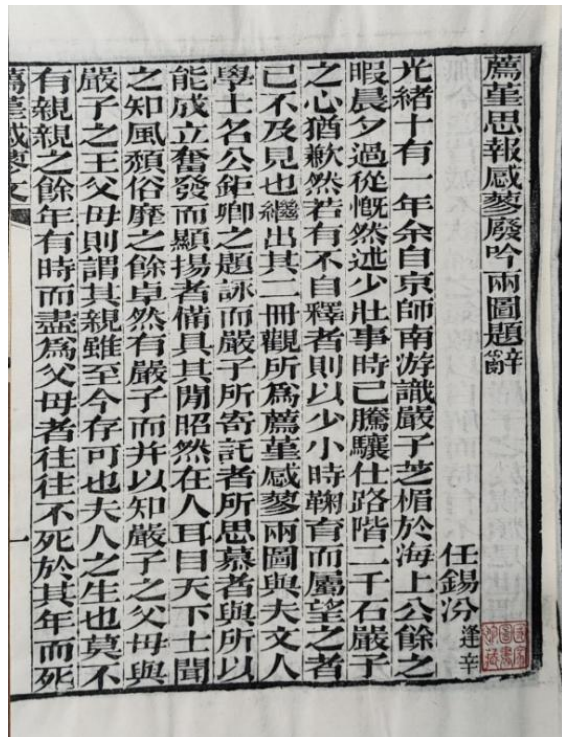 薦菫思報感蓼廢吟兩圖題辭
任錫汾逢辛
光緒十有一年余自京師南游識嚴子芝楣於海上公餘之
暇晨夕過從慨然述少壯事時已騰驤仕路階二千石嚴子
之心猶歉然若有不自釋者則以少小時鞠育而屬望之者
已不及見也繼出其二冊觀所為薦菫感蓼兩圖與夫文人
學士名公鉅卿之題詠而嚴子所寄託者所思慕者與所以
能成立奮發而顯揚者備具其閒昭然在人耳目天下士聞
之知風頹俗靡之餘卓然有嚴子而并以知嚴子之父母與
嚴子之王父母則謂其親雖至今存可也夫人之生也莫不
有親親之餘年有時而盡為父母者往往不死於其年而死
薦菫感蓼文
一